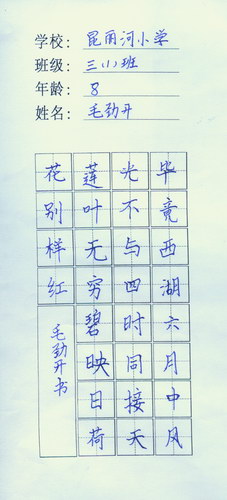 学校: 昆丽河小学
班级: 三(1)班
年龄: 8
姓名: 毛劲升
毕竟西湖六月中风
光不与四时同接天
莲叶无穷碧映日荷
花别样红
毛劲升书